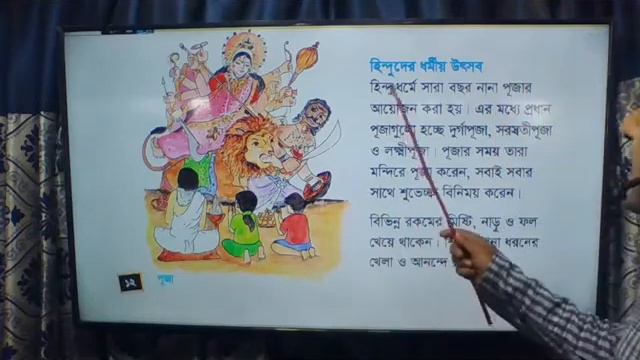 হিন্দুদের ধর্মীয় উৎসব
হিন্দুধর্মে সারা বছর নানা পূজার
আয়োজন করা হয়। এর মধ্যে প্রধান
পূজাগুলো হচ্ছে দুর্গাপূজা, সরস্বতীপূজা
ও লক্ষ্মীপূজা। পূজার সময় তারা
মন্দিরে পূজা করেন, সবাই সবার
সাথে শুভেচ্ছা বিনিময় করেন।
বিভিন্ন রকমের মিষ্টি, নাড়ু ও ফল
খেয়ে থাকেন। ধরনের
খেলা ও আনন্দে
১২
পূজা